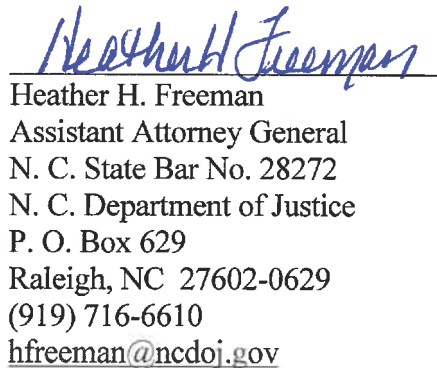 Heather H Freeman
Heather H. Freeman
Assistant Attorney General
N. C. State Bar No. 28272
N. C. Department of Justice
P. O. Box 629
Raleigh, NC  27602-0629
(919) 716-6610
hfreeman@ncdoj.gov